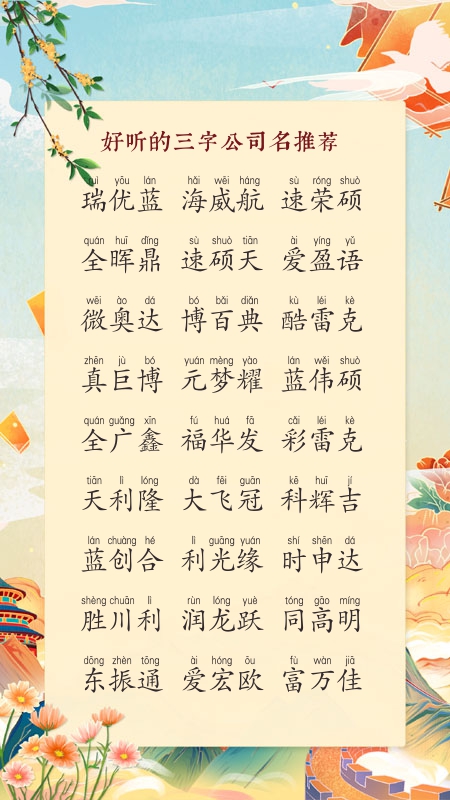 好听的三字公司名推荐
ruì yōu lán hǎi wēi háng sù róng shuò
瑞优蓝 海威航 速荣硕
quán huī dǐng sù shuò tiān ài yíng yǔ
全晖鼎 速硕天 爱盈语
wēi ào dá bó bǎi diǎn kù léi kè
微奥达 博百典 酷雷克
zhēn jù bó yuán mèng yào lán wěi shuò
真巨博 元梦耀 蓝伟硕
quán guǎng xīn fú huá fā cǎi léi kè
全广鑫 福华发 彩雷克
tiān lì lóng dà fēi guān kē huī jí
天利隆 大飞冠 科辉吉
lán chuàng hé lì guāng yuán shí shēn dá
蓝创合 利光缘 时申达
shèng chuān lì rùn lóng yuè tóng gāo míng
胜川利 润龙跃 同高明
dōng zhèn tōng ài hóng ōu fù wàn jiā
东振通 爱宏欧 富万佳